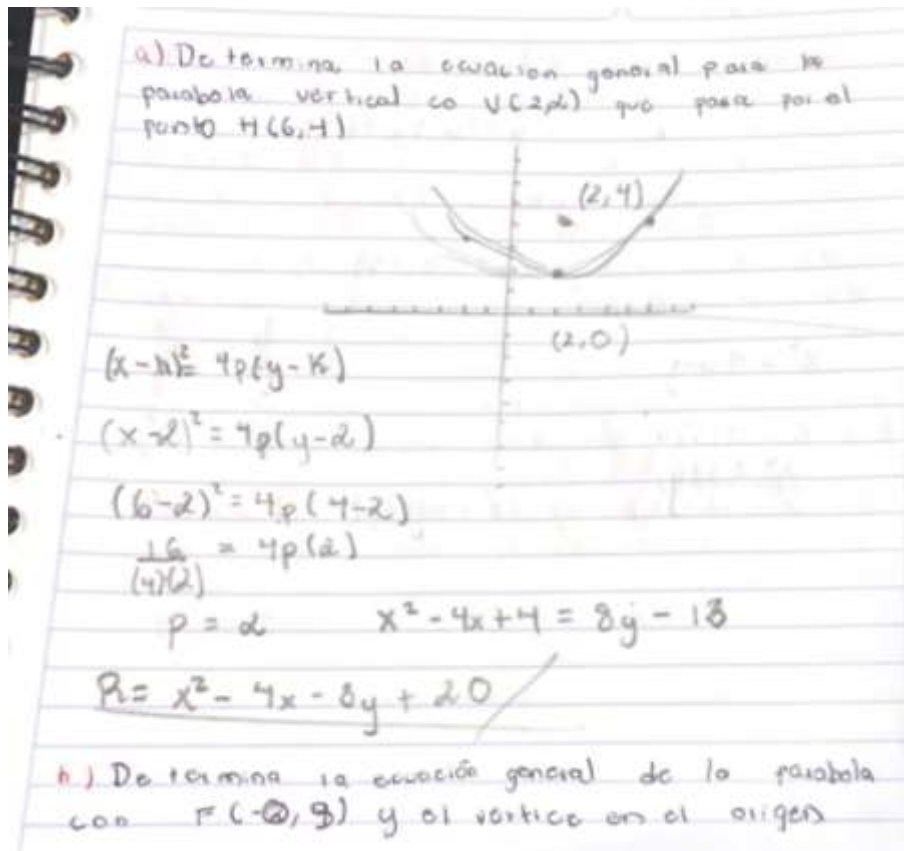 a) Determina la ecuacion general para la
parabola vertical co V(2,2) que pasa por el
punto H(6,4)
(2,4)
(2,0)
(x-h)²= 4p(y-k)
(x-2)² = 4p(y-2)
(6-2)² = 4p(4-2)
16/(4)(2) = 4p(2)
p = 2 x² - 4x + 4 = 8y - 16
R= x² - 4x - 8y + 20
h) Determina la ecuación general de la parabola
con y el vertice en el origen